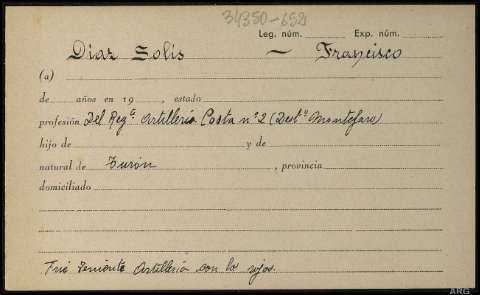 34850-652
Leg. núm. Exp. núm.
Díaz Solís — Francisco
(a)
de años en 19 , estado
profesión Del Regº Artillería Costa nº 2 (Destº Montefaro)
hijo de y de
natural de Turón , provincia
domiciliado
Fué Teniente Artillería con los rojos.
ARG